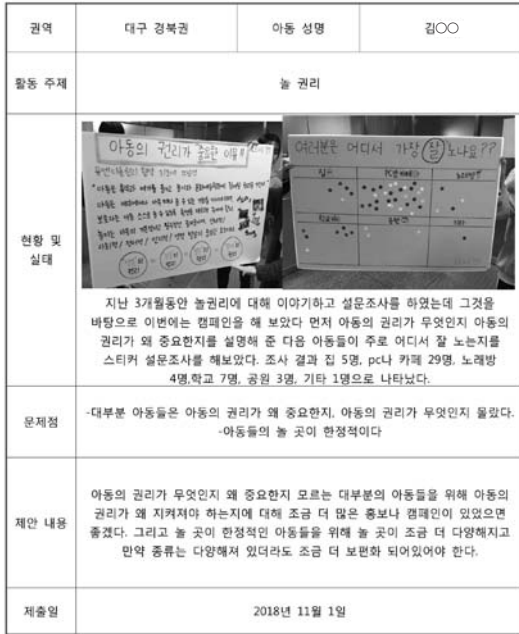 권역 대구 경북권 아동 성명 김○○
활동 주제 놀 권리
현황 및 실태
아동의 권리가 중요한 이유
여러분은 어디서 가장 잘 노나요??
지난 3개월동안 놀권리에 대해 이야기하고 설문조사를 하였는데 그것을
바탕으로 이번에는 캠페인을 해 보았다 먼저 아동의 권리가 무엇인지 아동의
권리가 왜 중요한지를 설명해 준 다음 아동들이 주로 어디서 잘 노는지를
스티커 설문조사를 해보았다. 조사 결과 집 5명, pc나 카페 29명, 노래방
4명,학교 7명, 공원 3명, 기타 1명으로 나타났다.
문제점
-대부분 아동들은 아동의 권리가 왜 중요한지, 아동의 권리가 무엇인지 몰랐다.
-아동들의 놀 곳이 한정적이다
제안 내용
아동의 권리가 무엇인지 왜 중요한지 모르는 대부분의 아동들을 위해 아동의
권리가 왜 지켜져야 하는지에 대해 조금 더 많은 홍보나 캠페인이 있었으면
좋겠다. 그리고 놀 곳이 한정적인 아동들을 위해 놀 곳이 조금 더 다양해지고
만약 종류는 다양해져 있더라도 조금 더 보편화 되어있어야 한다.
제출일 2018년 11월 1일